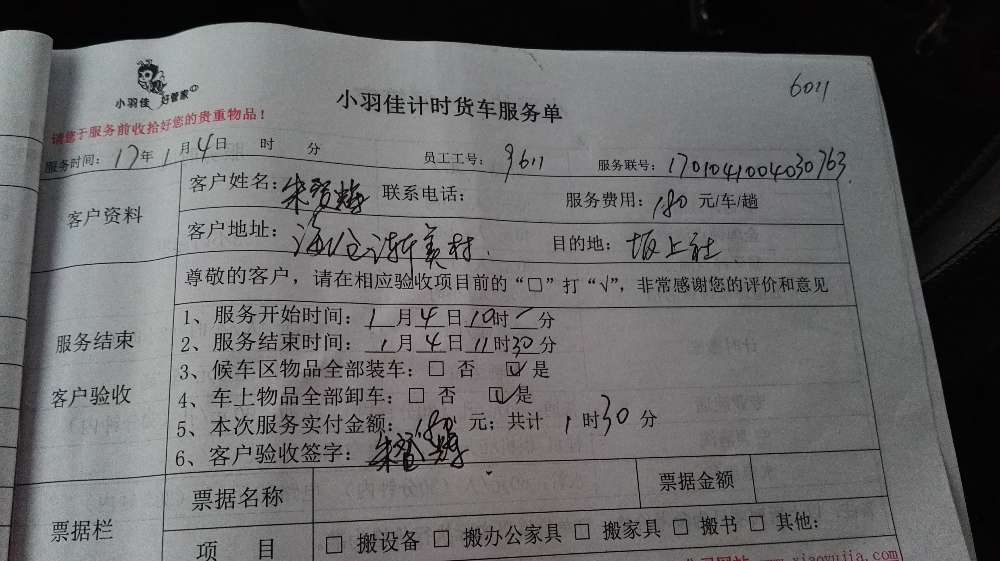 6011
小羽佳 好管家
小羽佳计时货车服务单
请您于服务前收拾好您的贵重物品！
服务时间：17年1月4日 时 分 员工工号：3611 服务联号：1701041004030763
客户资料
客户姓名：朱贤辉 联系电话： 服务费用：180元/车/趟
客户地址：海沧渐美村. 目的地：坂上社
尊敬的客户，请在相应验收项目前的“□”打“√”，非常感谢您的评价和意见
服务结束
客户验收
1、服务开始时间：1月4日10时 分
2、服务结束时间：1月4日11时30分
3、候车区物品全部装车：□ 否 ☑ 是
4、车上物品全部卸车：□ 否 ☑ 是
5、本次服务实付金额：180元；共计 1时30分
6、客户验收签字：
票据栏
票据名称 票据金额
项 目 □ 搬设备 □ 搬办公家具 □ 搬家具 □ 搬书 □ 其他：